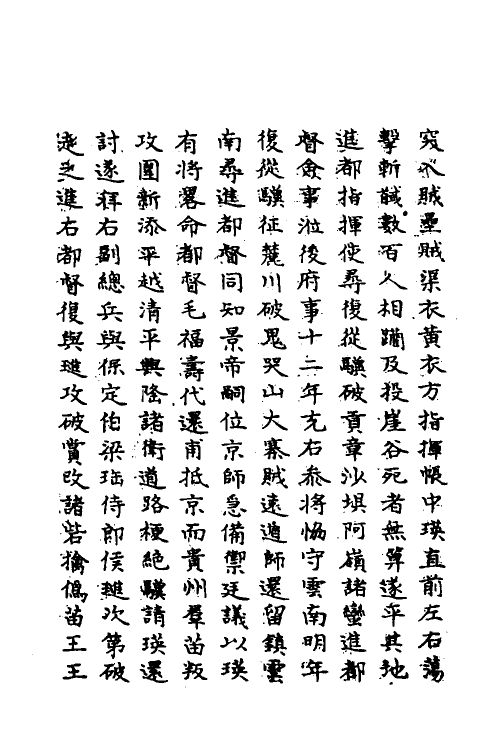 突入賊壘賊渠衣黃衣方指揮帳中瑛直前左右蕩
擊斬馘數百人相蹂及投崖谷死者無筭遂平其地
進都指揮使尋復從驥破貢章沙壩阿嶺諸蠻進都
督僉事涖後府事十二年充右參將恊守雲南明年
復從驥征麓川破鬼哭山大寨賊遠遁師還留鎮雲
南尋進都督同知景帝嗣位京師急備禦廷議以瑛
有將畧命都督毛福壽代還甫抵京而貴州羣苗叛
攻圍新添平越清平興隆諸衛道路梗絶驥請瑛還
討遂拜右副總兵與保定伯梁珤侍郎侯璡次第破
走之進右都督復與璡攻破賞改諸砦擒僞苗王王